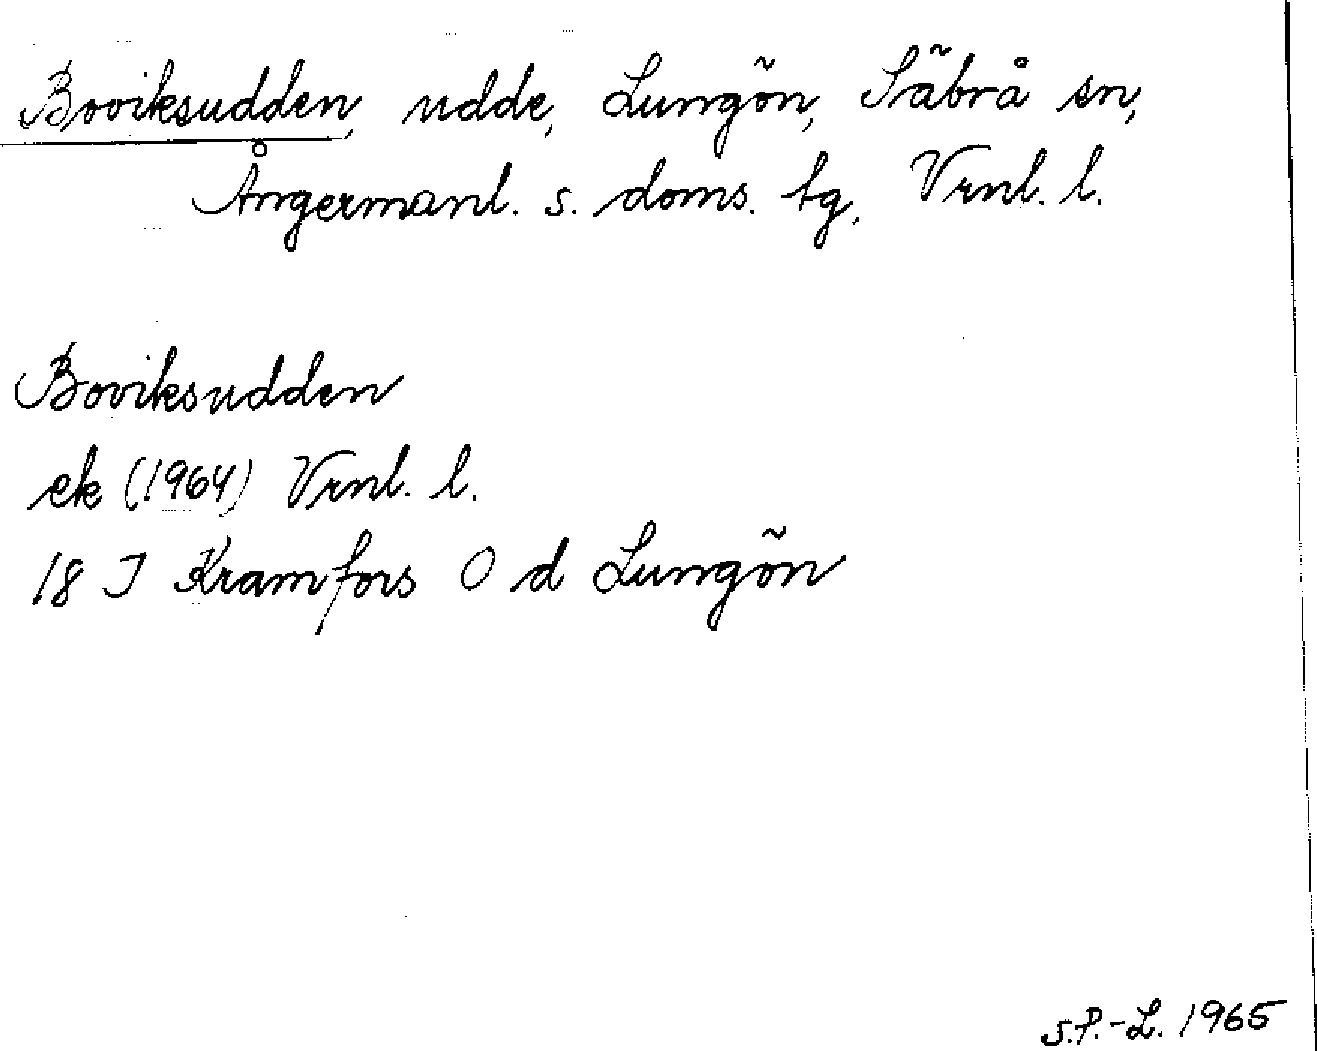 Boviksudden, udde, Lungön, Säbrå sn,
Ångermanl. s. doms. tg, Vrnl. l.
Boviksudden
ek (1964) Vrnl. l.
18 I Kramfors O d Lungön
S.P.-L. 1965